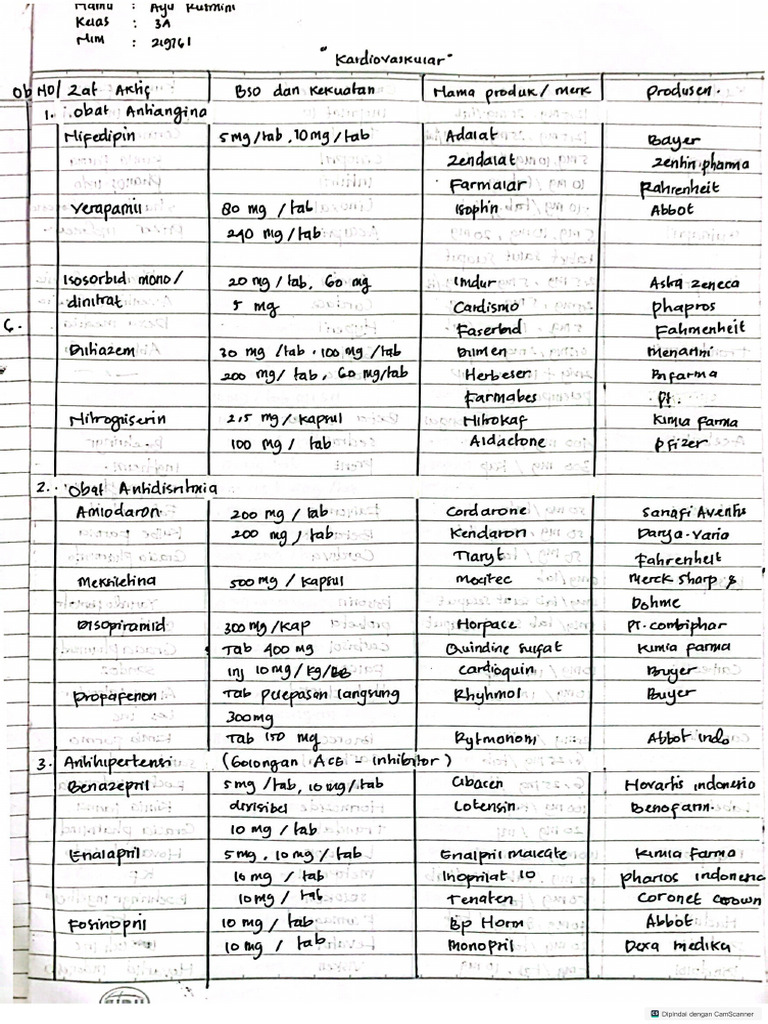 Nama : Ayu Kusmini
Kelas : 3A
Nim : 219761
"Kardiovaskular"
NO/ Zat Aktif BSO dan Kekuatan Nama produk/merk Produsen.
1. Obat Antiangina
Nifedipin 5 mg/tab, 10 mg/tab Adalat Bayer
Zendalat Zenhin pharma
Farmalat Fahrenheit
Verapamil 80 mg/tab Isophin Abbot
240 mg/tab
Isosorbid mono/ 20 mg/tab, 60 mg Imdur Astra Zeneca
dinitrat 5 mg Cardismo phapros
Faserbid Fahmenheit
Diltiazem 30 mg/tab. 100 mg/tab Dilmen Menarini
200 mg/tab, 60 mg/tab Herbeser
Farmabes Pt.
Nitrogliserin 2,5 mg/kapsul Nitrokaf Kimia farma
100 mg/tab Aldactone Pfizer
2. Obat Antidisritmia
Amiodaron 200 mg/tab Cordarone Sanafi Aventis
200 mg/tab Kendaron Darya-varia
Tiaryt Fahrenheit
Meksiletina 500 mg/kapsul Mexitec Merck Sharp &
Dohme
Disopiramid 300 mg/kap Norpace Pt. combiphar
Tab 400 mg Quindine sulfat Kimia farma
Inj 10 mg/kg/BB Cardioquin Buyer
Propafenon Tab pelepasan langsung Rhyhmol Buyer
300 mg
Tab 150 mg Rytmonorm Abbot indo
3. Antihipertensi (Golongan ACE - inhibitor)
Benazepril 5 mg/tab, 10 mg/tab Cibacen Novartis indonesia
divisibel Lotensin
10 mg/tab
Enalapril 5 mg, 10 mg/tab Enalpril Maleate Kimia Farma
10 mg/tab Inoprilat 10 pharos indonesia
10 mg/tab Tenaten Coronet crown
Fosinopril 10 mg/tab Bp Norm Abbot
10 mg/tab Monopril Dexa medika
Dipindai dengan CamScanner